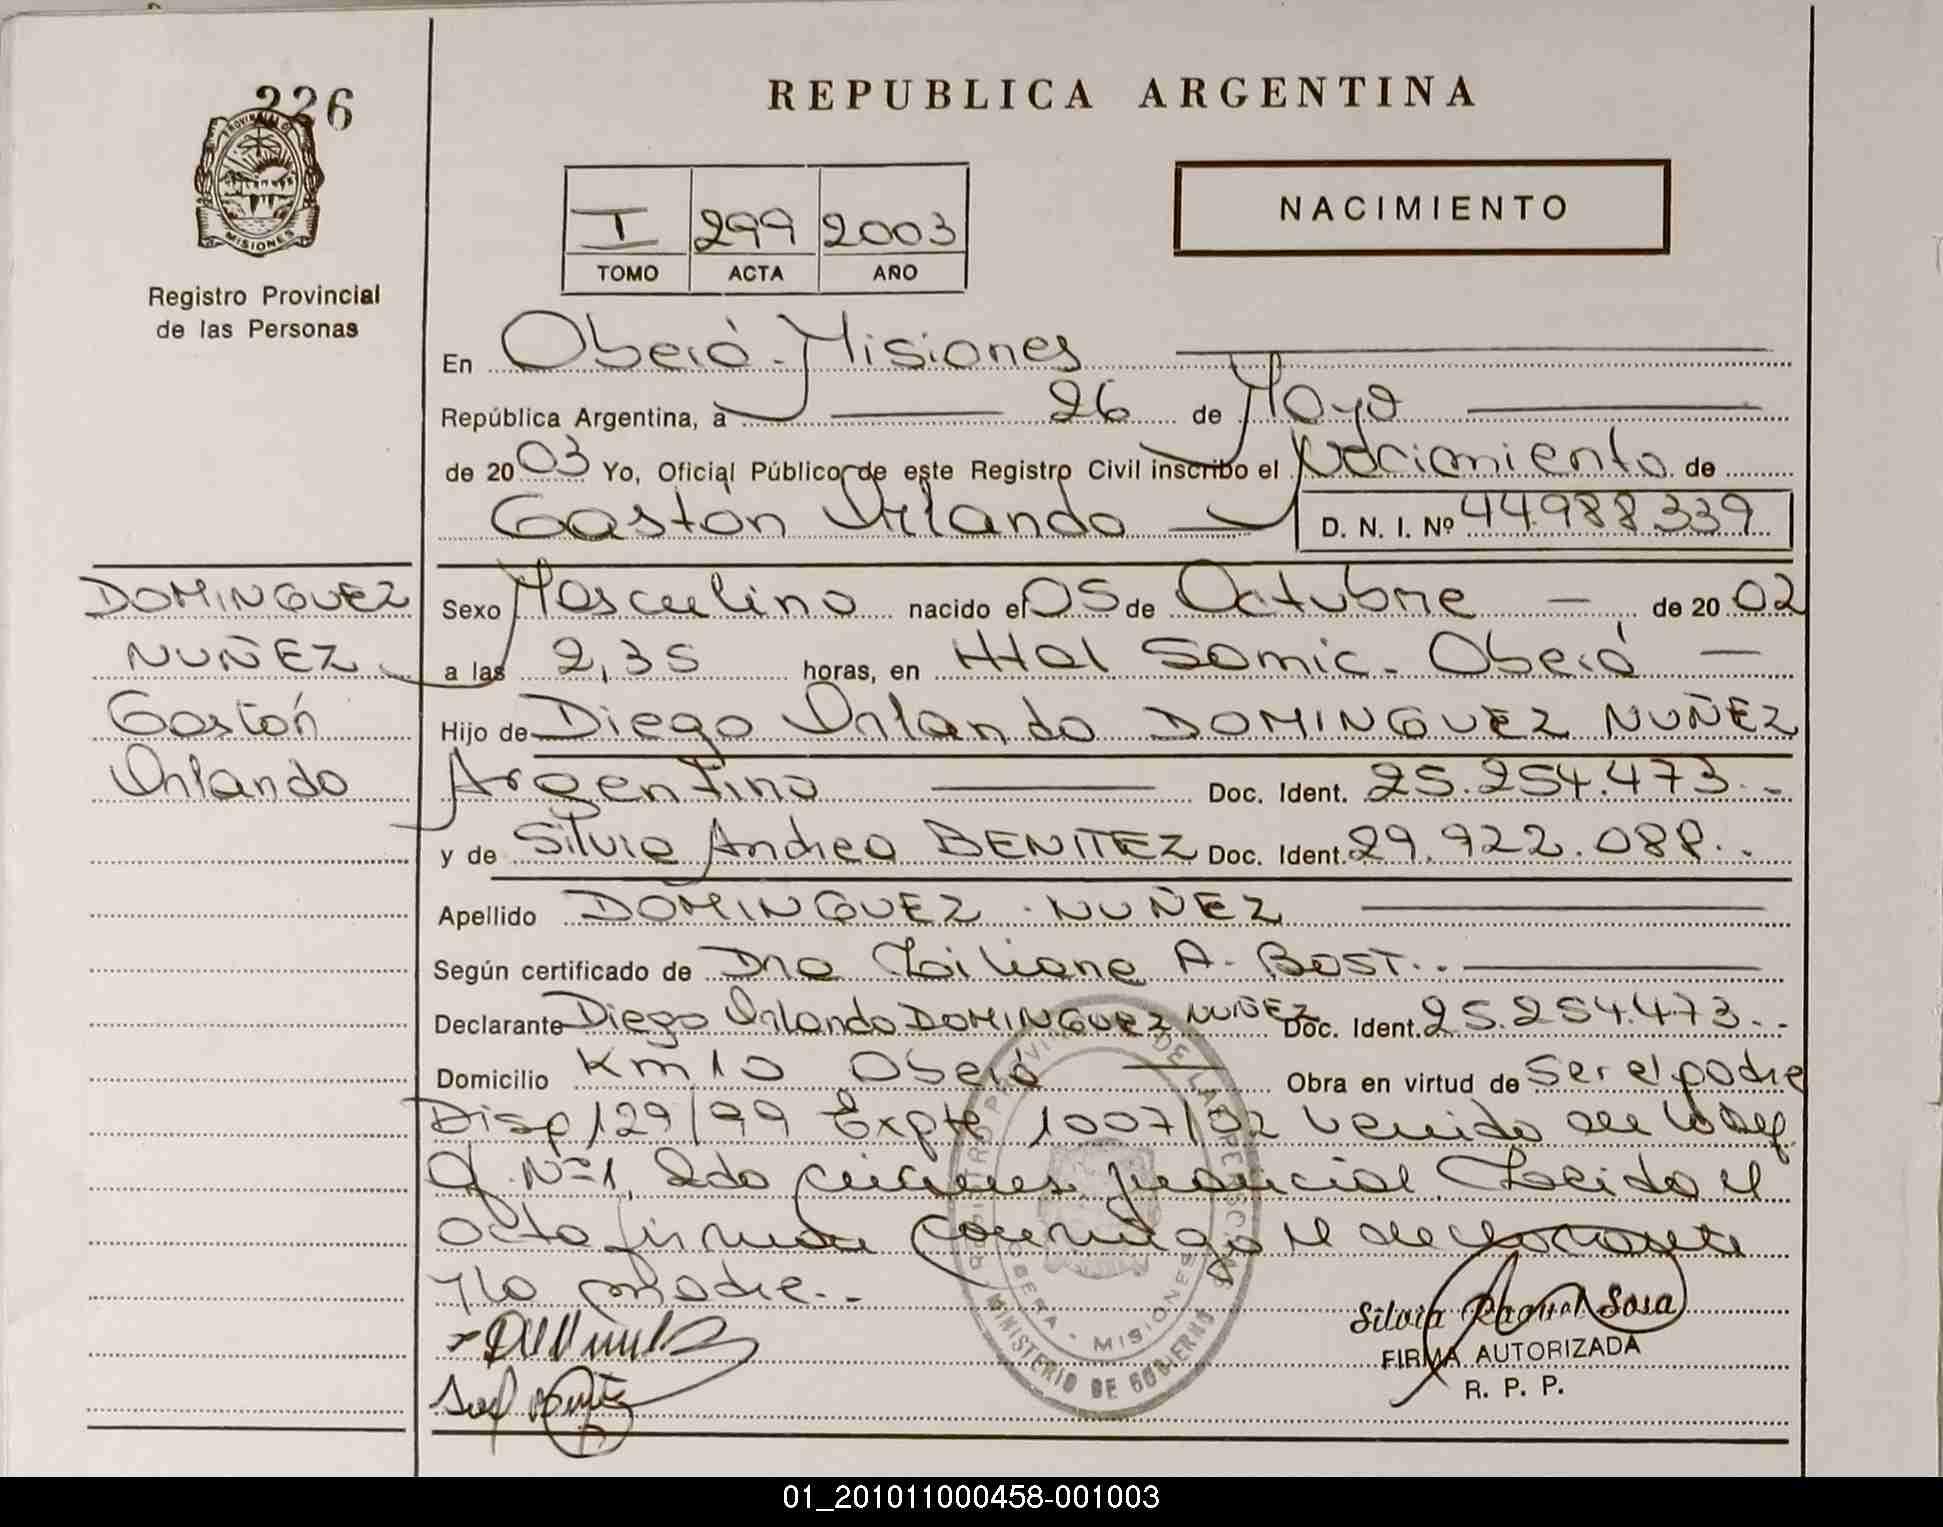 226
REPUBLICA ARGENTINA
PROVINCIA D MISIONES
Registro Provincial
de las Personas
I 299 2003
TOMO ACTA AÑO
NACIMIENTO
En Oberá - Misiones
República Argentina, a 26 de Mayo
de 2003 Yo, Oficial Público de este Registro Civil inscribo el Nacimiento de
Gastón Orlando D. N. I. Nº 44988339
DOMINGUEZ
NUÑEZ
Gastón
Orlando
Sexo Masculino nacido el 05 de Octubre - de 2002
a las 2,35 horas, en Htal Samic - Oberá
Hijo de Diego Orlando DOMINGUEZ NUÑEZ
Argentino Doc. Ident. 25.254.473.-
y de Silvia Andrea BENITEZ Doc. Ident. 29.922.088.-
Apellido DOMINGUEZ NUÑEZ
Según certificado de Dra Liliana A. BOST.-
Declarante Diego Orlando DOMINGUEZ NUÑEZ Doc. Ident. 25.254.473.-
Domicilio Km 10 Oberá Obra en virtud de Ser el padre
Disp 129/99 Expte 1007/02 venido de la Def
Of. Nº 1, 2da judicial Leida el
acta firman conmigo el declarante
y la madre.-
REGISTRO PROVINCIAL DE LAS PERSONAS
OBERA - MISIONES
MINISTERIO DE GOBIERNO
Silvia Raquel Sosa
FIRMA AUTORIZADA
R. P. P.
01_201011000458-001003